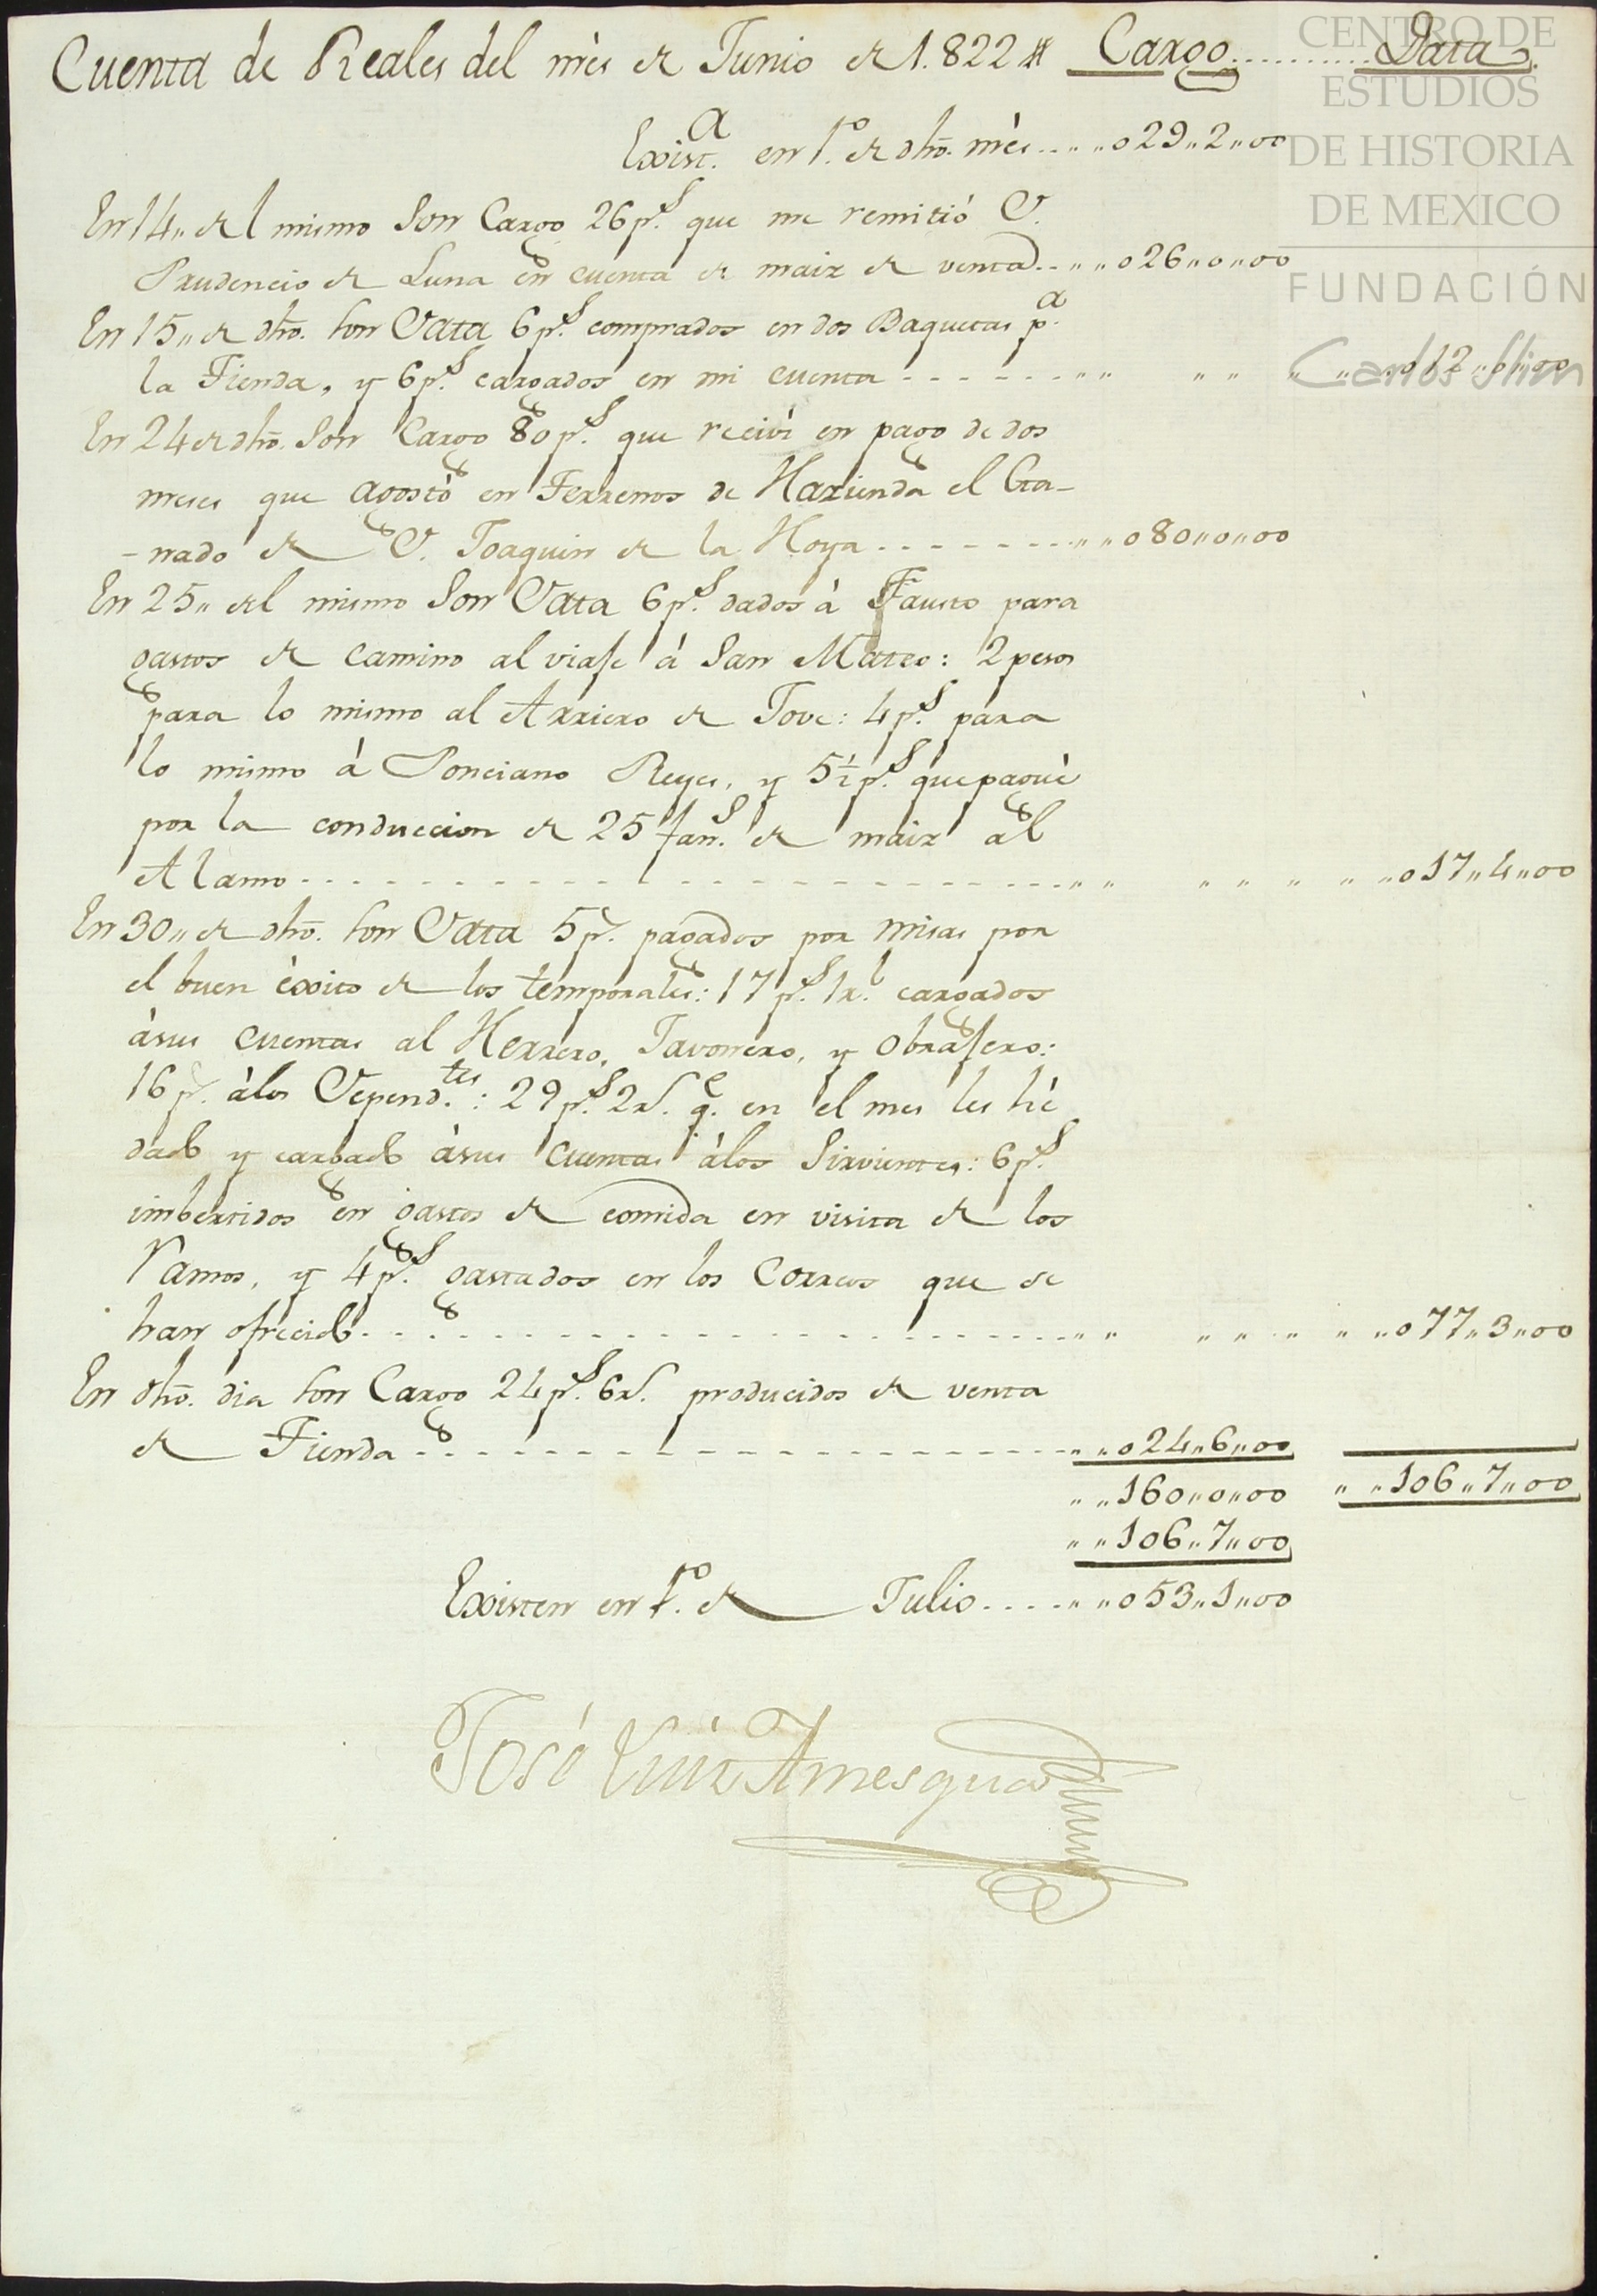 Cuenta de Reales del mès de Junio de 1.822 # Cargo.......... Data.
CENTRO DE
ESTUDIOS
DE HISTORIA
DE MEXICO
FUNDACIÓN
Carlos Slim
Exist.ª en 1.º de dho. mès.. „ „ 029„2„00
En 14„ del mismo Son Cargo 26 p.s que me remitió D.
Prudencio de Luna en cuenta de maiz de venta.. „ „ 026„0„00
En 15„ de dho. son Data 6 p.s comprados en dos Baquetas p.ª
la Tienda, y 6 p.s cargados en mi cuenta - - - - - - - „ „ „ „ „ „ „ 012„0„00
En 24 de dho. Son Cargo 80 p.s que recivi en pago de dos
meses que agostó en Terrenos de Hazienda el Ga-
-nado de D. Joaquin de la Hoya - - - - - - - „ „ 080„0„00
En 25„ del mismo Son Data 6 p.s dados à Fausto para
gastos de camino al viaje à San Mateo: 2 pesos
para lo mismo al Arriero de Tove: 4 p.s para
lo mismo à Ponciano Reyes, y 5½ p.s que paguè
por la conduccion de 25 fan.s de maiz al
Alamo - - - - - - - - - - - - - - - - - - „ „ „ „ „ „ „ 017„4„00
En 30„ de dho. son Data 5 p.s pagados por misas por
el buen èxito de los temporales: 17 p.s 1 r.l cargados
àsus cuentas al Herrero, Javonero, y Obrajero:
16 p.s àlos Depend.tes: 29 p.s 2 r.s q.e en el mes les hè
dado y cargado àsus Cuentas àlos Sirvientes: 6 p.s
imbertidos en gastos de comida en visita de los
Vamos, y 4 p.s gastados en los Correos que se
han ofrecido - - - - - - - - - - - - - - - - - - „ „ „ „ „ „ „ 077„3„00
En dho. dia son Cargo 24 p.s 6 r.s producidos de venta
de Tienda - - - - - - - - - - - - - - - - - - „ „ 024„6„00
„ „ 160„0„00 „ „ 106„7„00
„ „ 106„7„00
Existen en 1.º de Julio.... „ „ 053„1„00
José Luis Amesqua